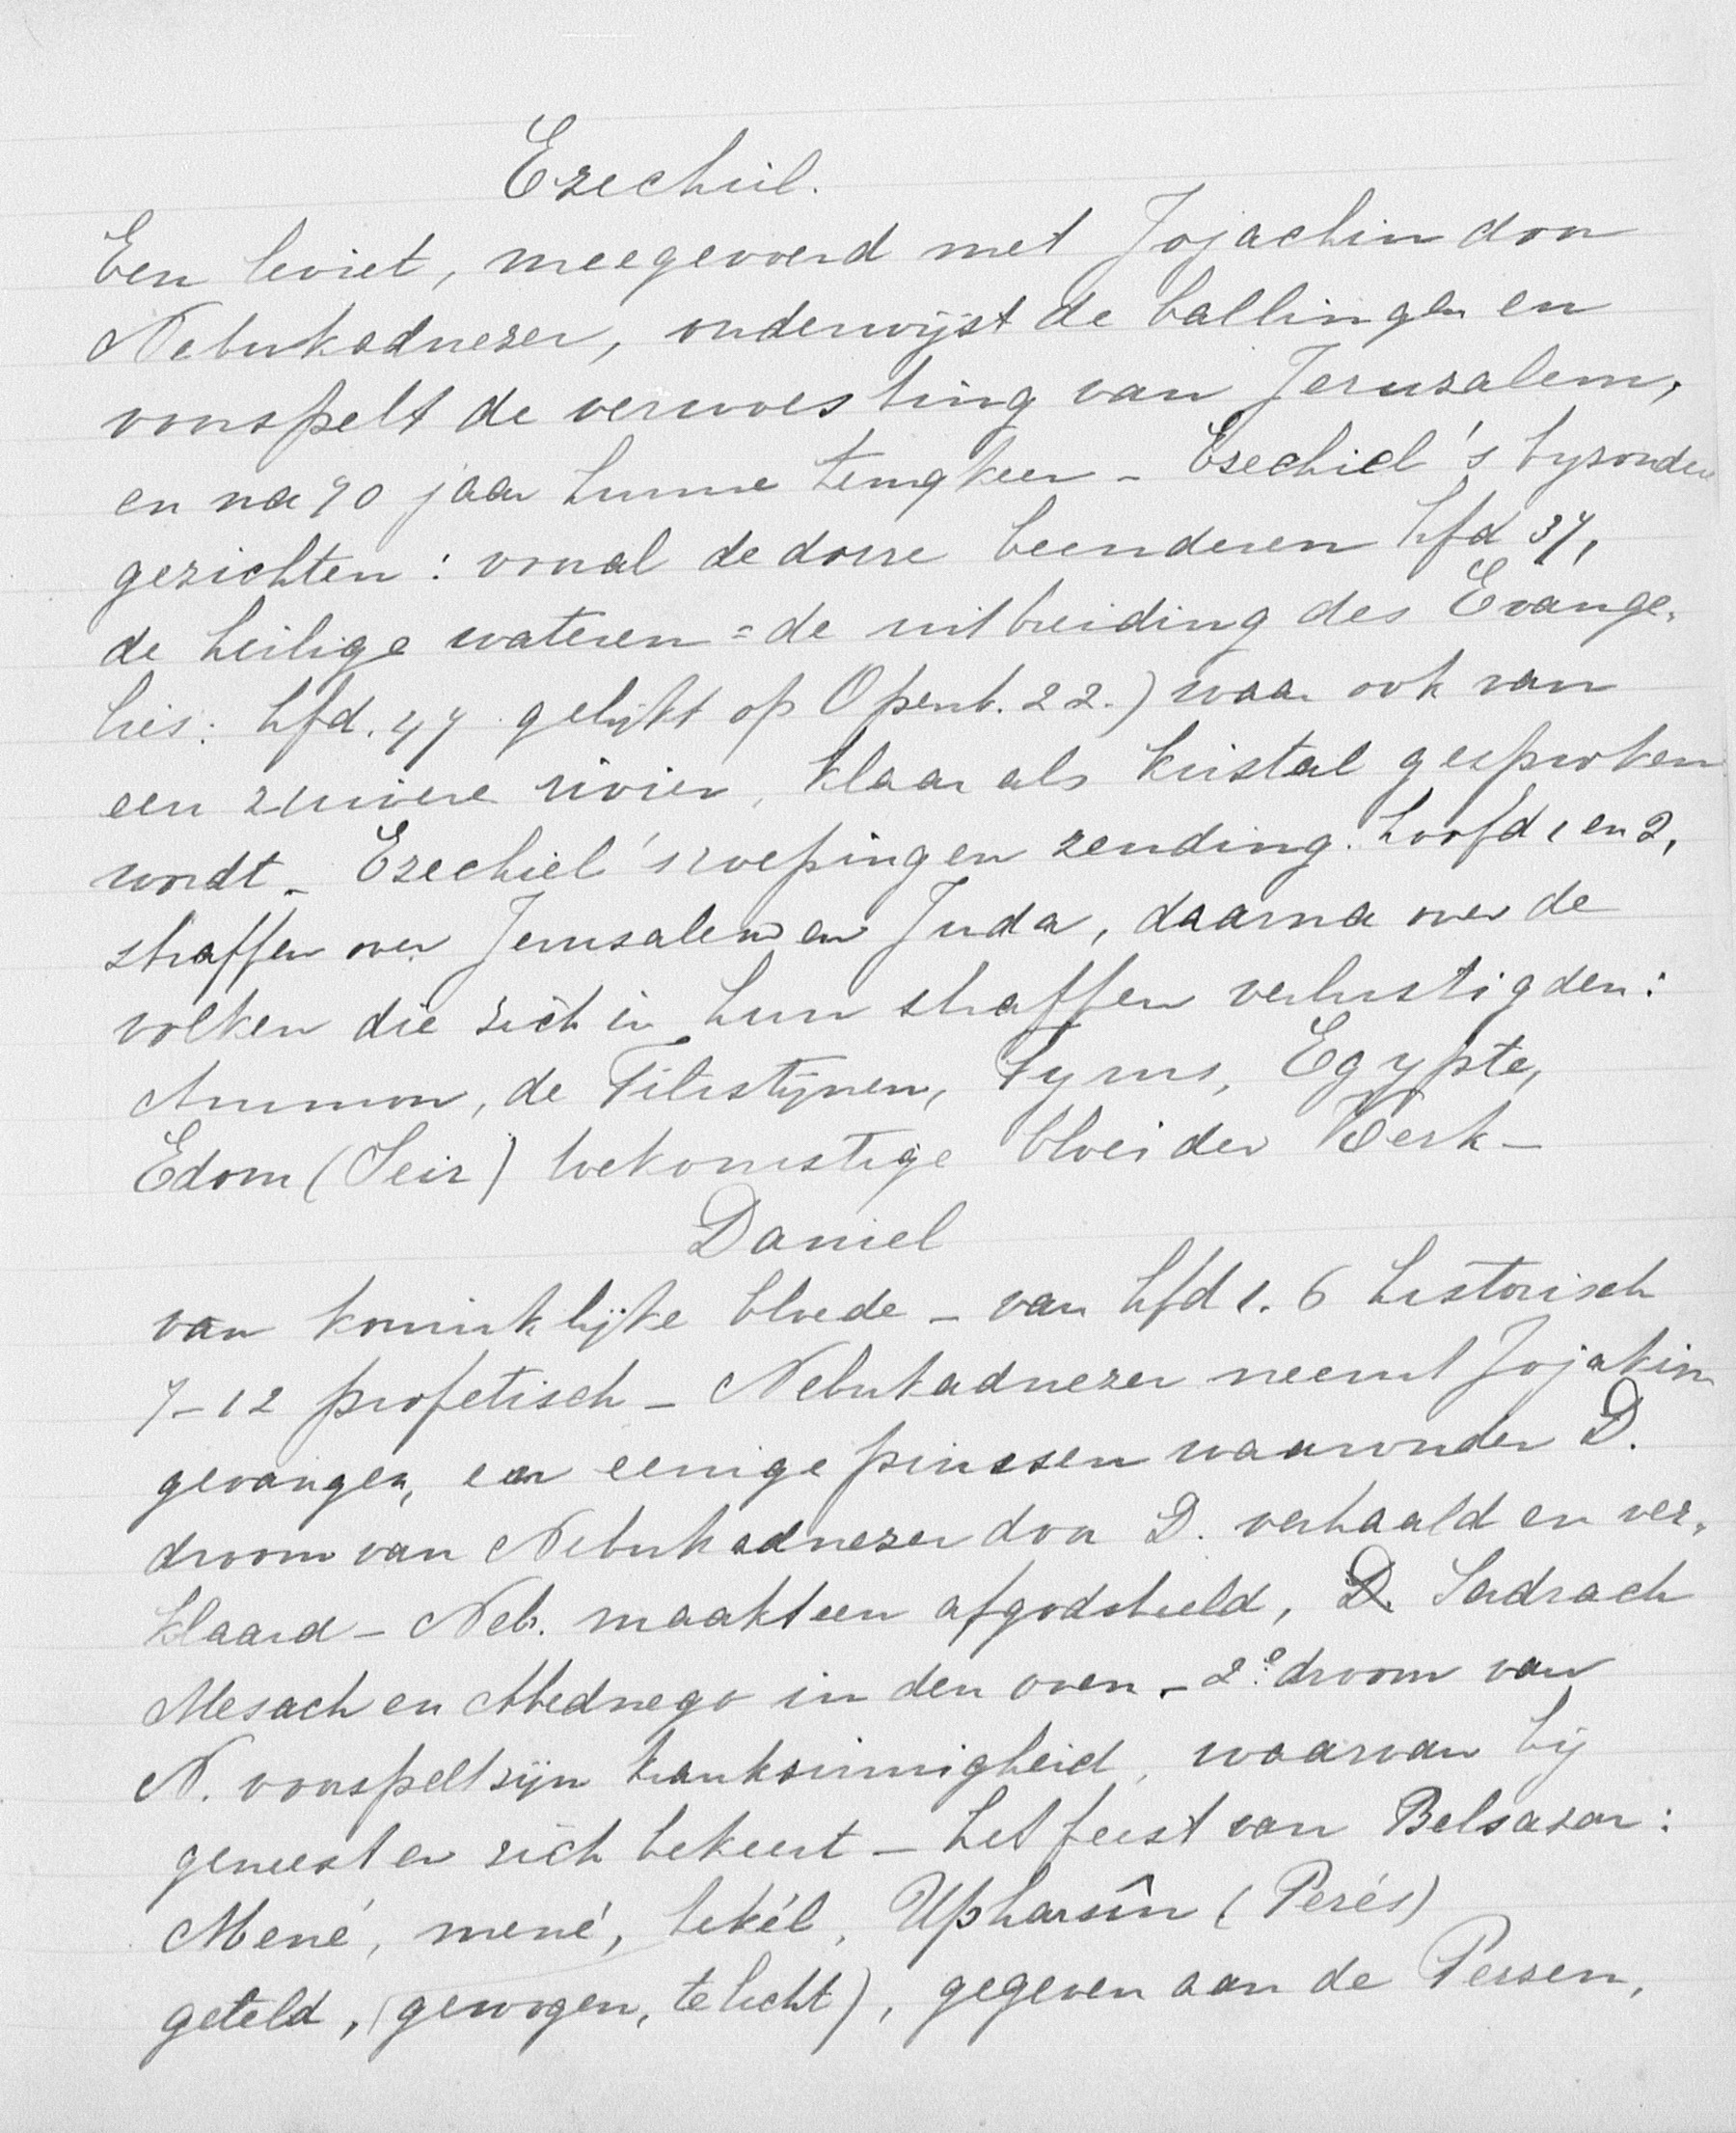 Ezechiël.
Een leviet, meegevoerd met Jojachin door
Nebukadnezer, onderwijst de ballingen en
voorspelt de verwoesting van Jeruzalem,
en na 70 jaar hunne terugkeer – Ezechiel's byzondere
gezichten: vooral de dorre beenderen hfd 37,
de heilige wateren = de uitbreiding des Evange-
lies: hfd. 47 gelijkt op Openb. 22.) waar ook van
een zuivere rivier, klaar als kristal gesproken
wordt – Ezechiel's roeping en zending. hoofd 1 en 2,
straffen over Jerusalem en Juda, daarna over de
volken die zich in hun straffen verlustigden:
Ammon, de Filistijnen, Tyrus, Egypte,
Edom (Seir) toekomstige bloei der Kerk –
Daniel
van koninklijke bloede – van hfd 1. 6 historisch
7–12 profetisch – Nebukadnezer neemt Jojakim
gevangen, en eenige prinssen waaronder D.
droom van Nebukadnezer door D. verhaald en ver-
klaard – Neb. maakt een afgodsbeeld, D. Sadrach
Mesach en Abednego in den oven – 2e droom van
N. voorspelt zijn krankzinnigheid, waarvan hij
geneest en zich bekeert – het feest van Belsazar:
Mené, mené, tekél, Upharsîn (Perés)
geteld, (gewogen, te licht), gegeven aan de Persen,